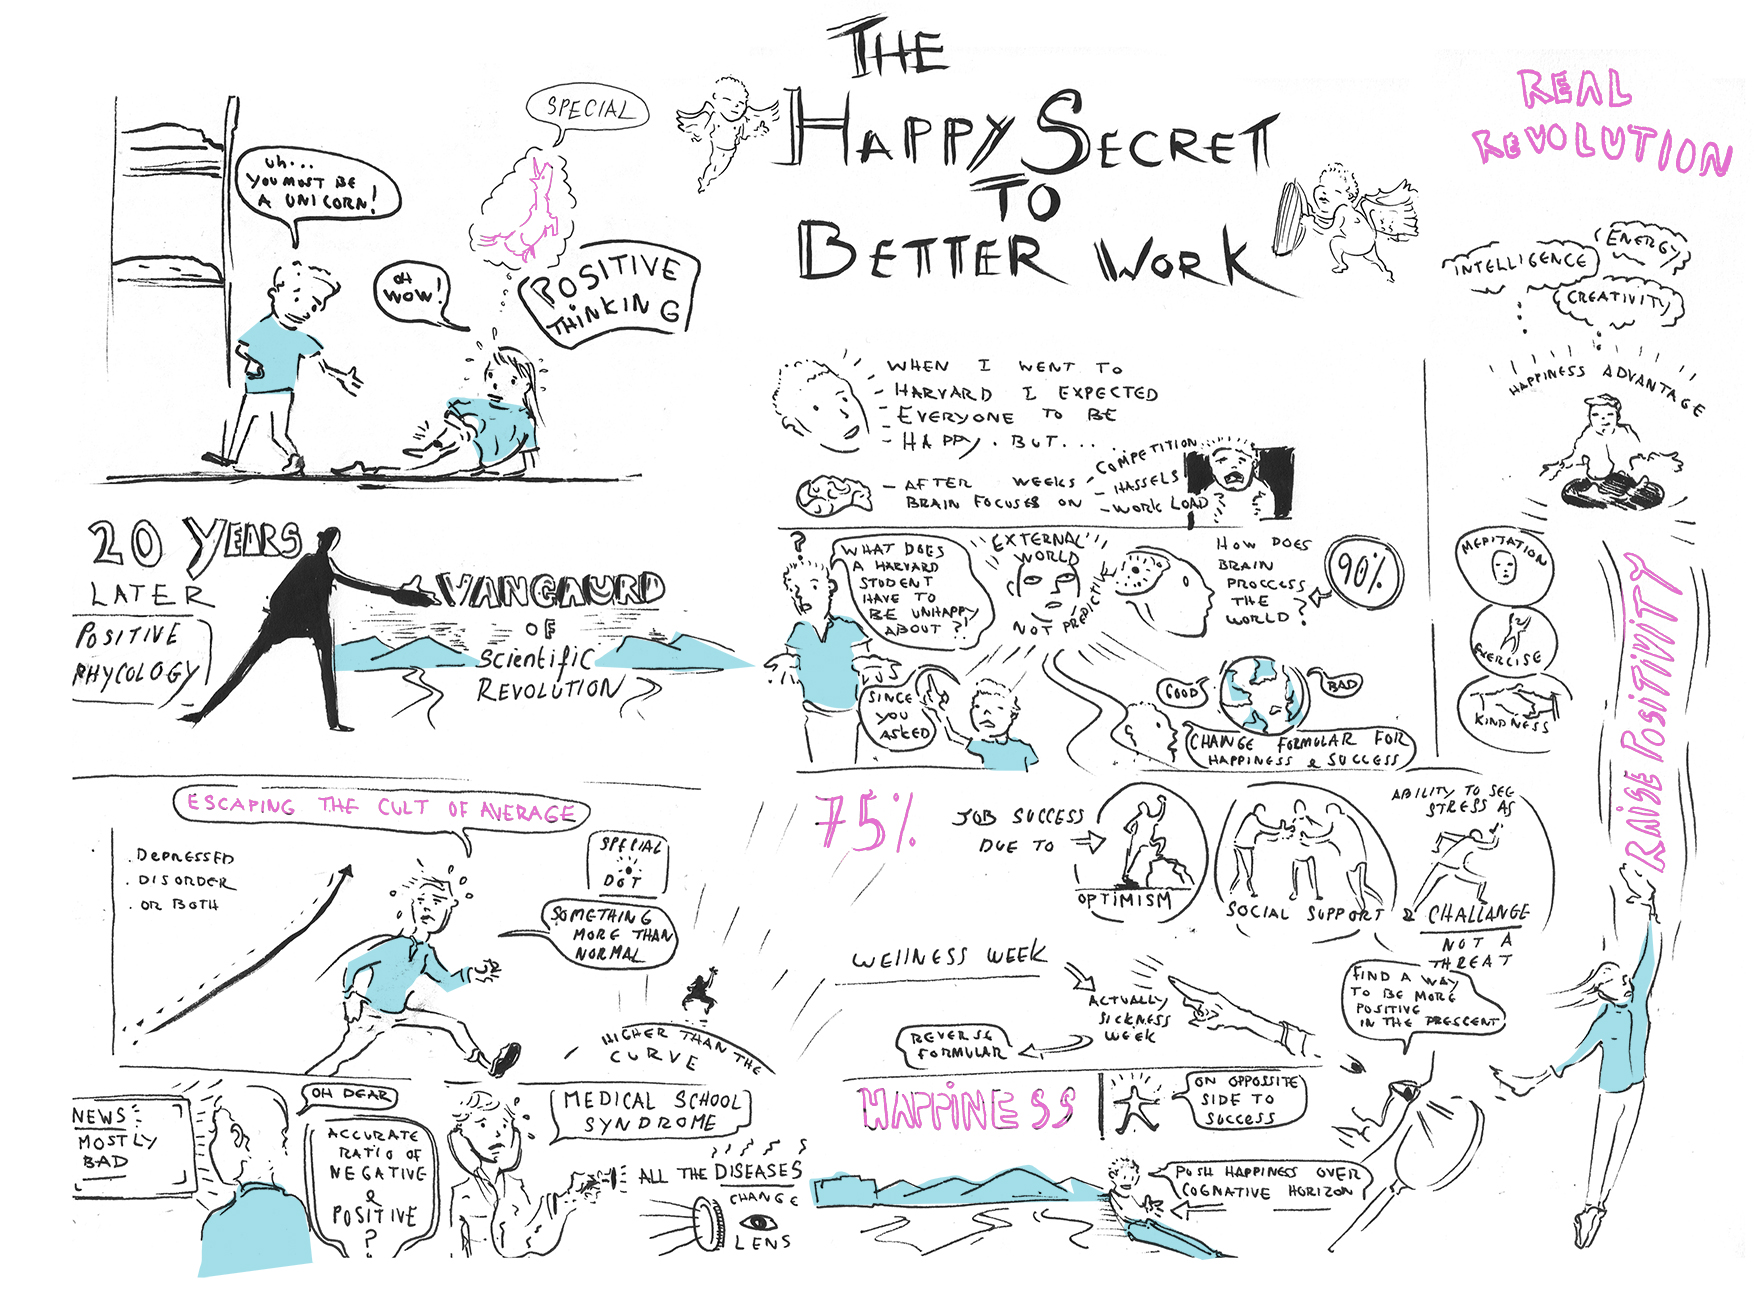 THE
HAPPY SECRET
TO
BETTER WORK
REAL
REVOLUTION
SPECIAL
uh...
YOU MUST BE
A UNICORN!
OH
WOW!
POSITIVE
THINKING
20 YEARS
LATER
POSITIVE
PHYCOLOGY
VANGAURD
OF
SCientific
REVOLUTION
ESCAPING THE CULT OF AVERAGE
. DEPRESSED
. DISORDER
. OR BOTH
SPECIAL
DOT
SOMETHING
MORE THAN
NORMAL
HIGHER THAN THE
CURVE
NEWS
MOSTLY
BAD
OH DEAR
ACCURATE
RATIO OF
NEGATIVE
&
POSITIVE
?
MEDICAL SCHOOL
SYNDROME
ALL THE DISEASES
CHANGE
LENS
WHEN I WENT TO
HARVARD I EXPECTED
EVERYONE TO BE
HAPPY. BUT...
- AFTER WEEKS
BRAIN FOCUSES ON
COMPETITION
- HASSELS
- WORK LOAD
?
WHAT DOES
A HARVARD
STUDENT
HAVE TO
BE UNHAPPY
ABOUT?!
EXTERNAL
WORLD
NOT PREDICTIVE
HOW DOES
BRAIN
PROCCESS
THE
WORLD?
90%
SINCE
YOU
ASKED
GOOD
BAD
CHANGE FORMULAR FOR
HAPPINESS & SUCCESS
75%
JOB SUCCESS
DUE TO
OPTIMISM
SOCIAL SUPPORT &
ABILITY TO SEE
STRESS AS
CHALLANGE
NOT A
THREAT
WEllNESS WEEK
ACTUALLY
SICKNESS
WEEK
REVERSE
FORMULAR
FIND A WAY
TO BE MORE
POSITIVE
IN THE PRESCENT
HAPPINESS
ON OPPOSITE
SIDE TO
SUCCESS
PUSH HAPPINESS OVER
COGNATIVE HORIZON
INTELLIGENCE
ENERGY
CREATIVITY
HAPPINESS ADVANTAGE
MEDITATION
EXERCISE
KINDNESS
RAISE POSITIVITY